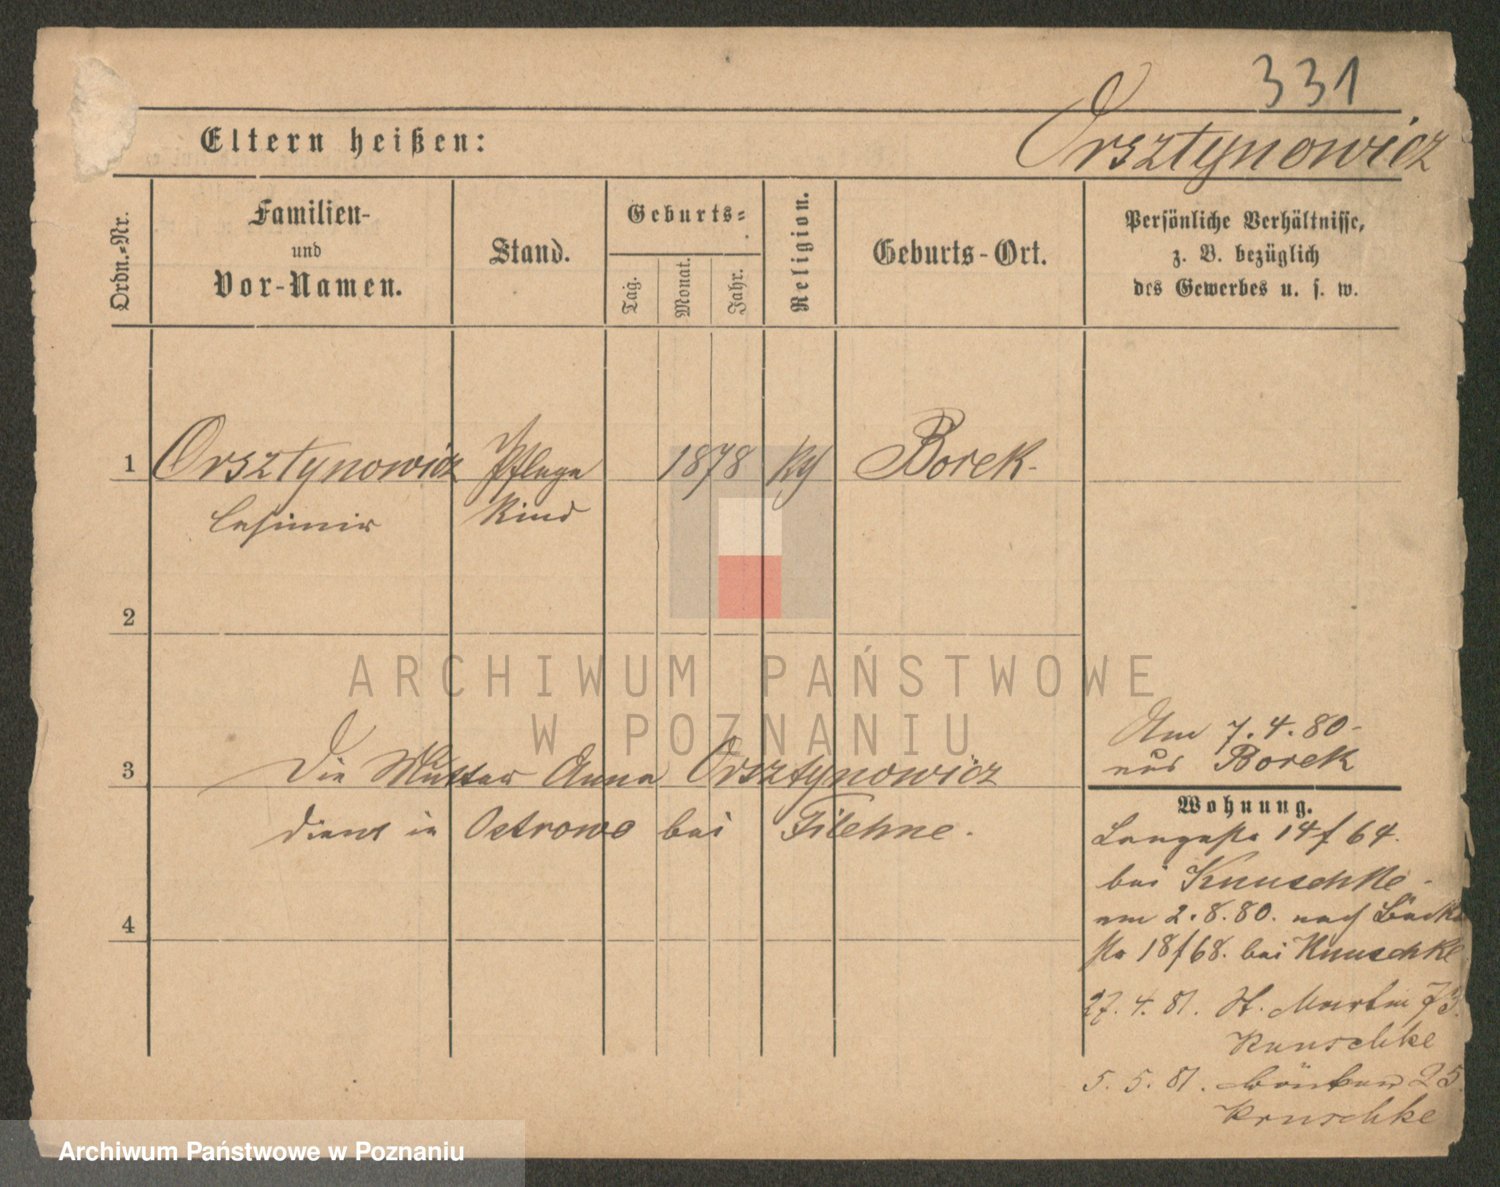 331
Orsztynowicz
Eltern heißen:
Ordn.-Nr.
Familien-
und
Vor-Namen.
Stand.
Geburts-
Tag.
Monat.
Jahr.
Religion.
Geburts-Ort.
Persönliche Verhältnisse,
z. B. bezüglich
des Gewerbes u. s. w.
1 Orsztynowicz Pflege 1878 Borek
Casimir Kind
2
ARCHIWUM PAŃSTWOWE
W POZNANIU
Am 7.4.80
aus Borek
3 Die Mutter Anna Orsztynowicz
dient in Ostrowo bei Filehne.
Wohnung.
Langestr 14/64.
bei Knuschke
am 2.8.80. nach
str 18/68. bei Knuschke
4
27.4.81. St. Martin 73.
Knuschke
5.5.81. 25.
Knuschke
Archiwum Państwowe w Poznaniu